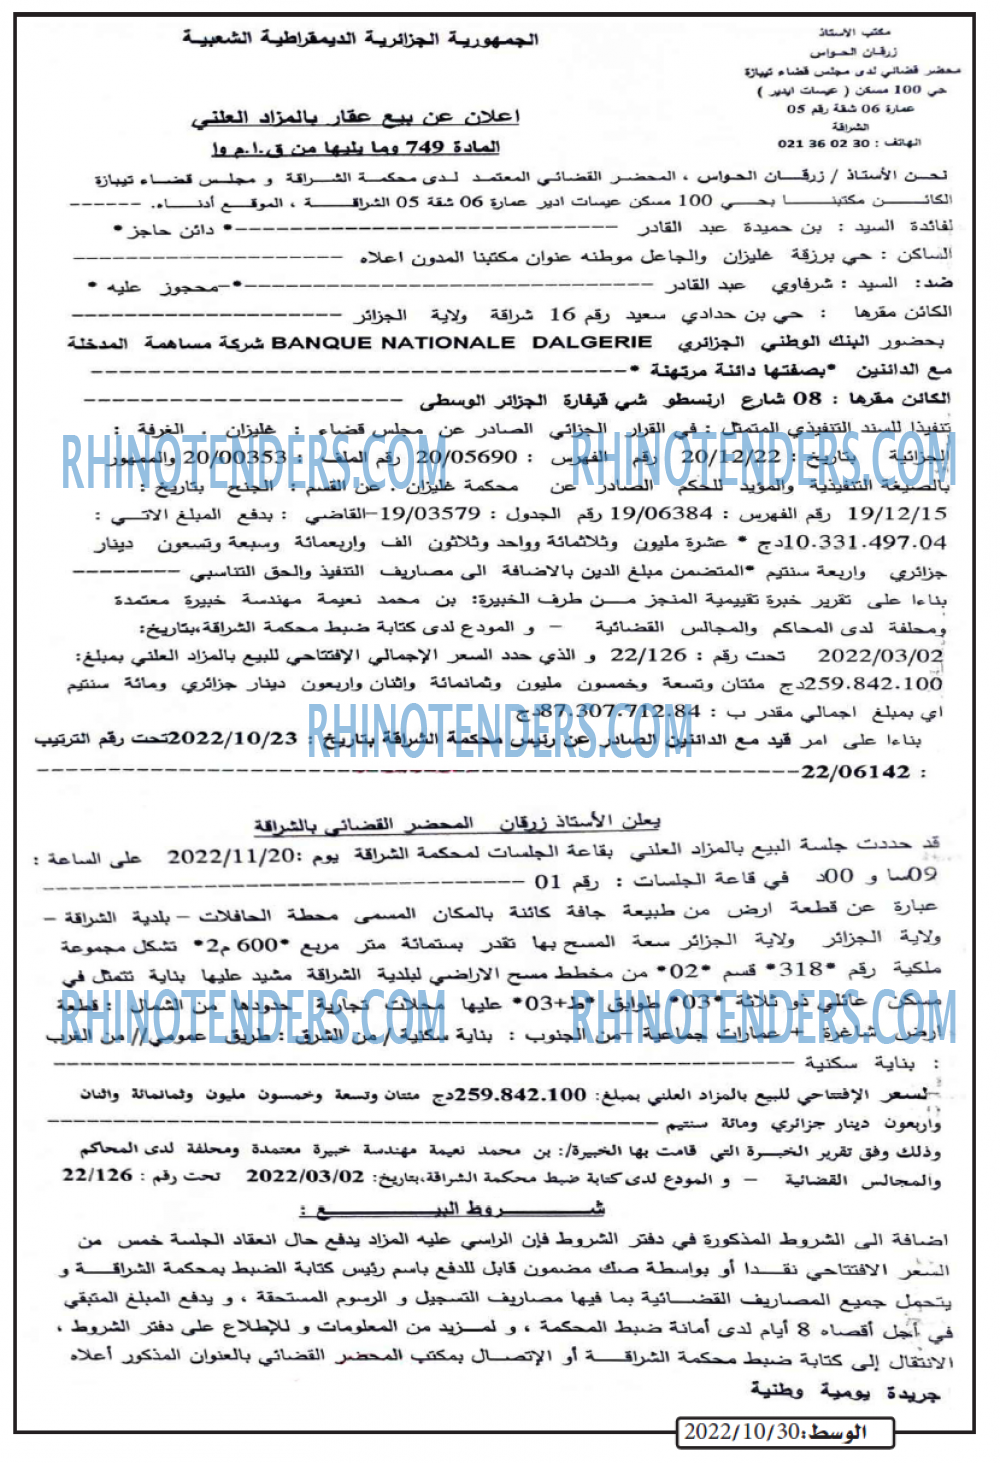 مكتب الاستاذ
زرقان الحواس
محضر قضائي لدى مجلس قضاء تيبازة
حي 100 مسكن ( عيسات ايدير )
عمارة 06 شقة رقم 05
الشراقة
الهاتف : 30 02 36 021
الجمهورية الجزائرية الديمقراطية الشعبية
اعلان عن بيع عقار بالمزاد العلني
المادة 749 وما يليها من ق.ا.م وا
نحن الأستاذ / زرقان الحواس ، المحضر القضائي المعتمد لدى محكمة الشراقة و مجلس قضاء تيبازة
الكائن مكتبنا بحي 100 مسكن عيسات ادير عمارة 06 شقة 05 الشراقة ، الموقع أدناه. ------
لفائدة السيد : بن حميدة عبد القادر -----------------------------* دائن حاجز *
الساكن : حي برزقة غليزان والجاعل موطنه عنوان مكتبنا المدون اعلاه --------------------
ضد: السيد : شرفاوي عبد القادر -------------------------------*-محجوز عليه *
الكائن مقرها : حي بن حدادي سعيد رقم 16 شراقة ولاية الجزائر --------------------
بحضور البنك الوطني الجزائري BANQUE NATIONALE DALGERIE شركة مساهمة المدخلة
مع الدائنين *بصفتها دائنة مرتهنة *----------------------------------------
الكائن مقرها : 08 شارع ارنسطو شي قيفارة الجزائر الوسطى ------------------------
تنفيذا للسند التنفيذي المتمثل : في القرار الجزائي الصادر عن مجلس قضاء : غليزان . الغرفة :
الجزائية بتاريخ : 20/12/22 رقم الفهرس : 20/05690 رقم الملف : 20/00353 والممهور
بالصيغة التنفيذية والمؤيد للحكم الصادر عن محكمة غليزان . عن القسم : الجنح بتاريخ :
19/12/15 رقم الفهرس : 19/06384 رقم الجدول : 19/03579-القاضي : بدفع المبلغ الاتي :
10.331.497.04دج * عشرة مليون وثلاثمائة وواحد وثلاثون الف واربعمائة وسبعة وتسعون دينار
جزائري واربعة سنتيم *المتضمن مبلغ الدين بالاضافة الى مصاريف التنفيذ والحق التناسبي --------
بناءا على تقرير خبرة تقييمية المنجز من طرف الخبيرة: بن محمد نعيمة مهندسة خبيرة معتمدة
ومحلفة لدى المحاكم والمجالس القضائية - و المودع لدى كتابة ضبط محكمة الشراقة،بتاريخ:
2022/03/02 تحت رقم : 22/126 و الذي حدد السعر الإجمالي الإفتتاحي للبيع بالمزاد العلني بمبلغ:
259.842.100دج مئتان وتسعة وخمسون مليون وثمانمائة واثنان واربعون دينار جزائري ومائة سنتيم
اي بمبلغ اجمالي مقدر ب : 87.307.712.84دج
بناءا على امر قيد مع الدائنين الصادر عن رئيس محكمة الشراقة بتاريخ : 2022/10/23تحت رقم الترتيب
: 22/06142----------------------------------------------------------
يعلن الأستاذ زرقان المحضر القضائي بالشراقة
قد حددت جلسة البيع بالمزاد العلني بقاعة الجلسات لمحكمة الشراقة يوم :2022/11/20 على الساعة :
09سا و 00د في قاعة الجلسات : رقم 01 ------------------------------------
عبارة عن قطعة ارض من طبيعة جافة كائنة بالمكان المسمى محطة الحافلات - بلدية الشراقة -
ولاية الجزائر ولاية الجزائر سعة المسح بها تقدر بستمائة متر مربع *600 م2* تشكل مجموعة
ملكية رقم *318* قسم *02* من مخطط مسح الاراضي لبلدية الشراقة مشيد عليها بناية تتمثل في
مسكن عائلي ذو ثلاثة *03* طوابق *ط+03* عليها محلات تجارية حدودها من الشمال : قطعة
ارض شاغرة + عمارات جماعية -من الجنوب : بناية سكنية /من الشرق : طريق عمومي// من الغرب
: بناية سكنية --------------------------------------------------------
-لسعر الإفتتاحي للبيع بالمزاد العلني بمبلغ: 259.842.100دج مئتان وتسعة وخمسون مليون وثمانمائة واثنان
واربعون دينار جزائري ومائة سنتيم ----------------------------------------------
وذلك وفق تقرير الخبرة التي قامت بها الخبيرة/: بن محمد نعيمة مهندسة خبيرة معتمدة ومحلفة لدى المحاكم
والمجالس القضائية - و المودع لدى كتابة ضبط محكمة الشراقة،بتاريخ: 2022/03/02 تحت رقم : 22/126
شروط البيع :
اضافة الى الشروط المذكورة في دفتر الشروط فإن الراسي عليه المزاد يدفع حال انعقاد الجلسة خمس من
السعر الافتتاحي نقدا أو بواسطة صك مضمون قابل للدفع باسم رئيس كتابة الضبط بمحكمة الشراقة و
يتحمل جميع المصاريف القضائية بما فيها مصاريف التسجيل و الرسوم المستحقة ، و يدفع المبلغ المتبقي
في أجل أقصاه 8 أيام لدى أمانة ضبط المحكمة ، و لمزيد من المعلومات و للإطلاع على دفتر الشروط ،
الانتقال إلى كتابة ضبط محكمة الشراقة أو الإتصال بمكتب المحضر القضائي بالعنوان المذكور أعلاه
جريدة يومية وطنية
الوسط:2022/10/30
RHINOTENDERS.COM
RHINOTENDERS.COM
RHINOTENDERS.COM
RHINOTENDERS.COM
RHINOTENDERS.COM